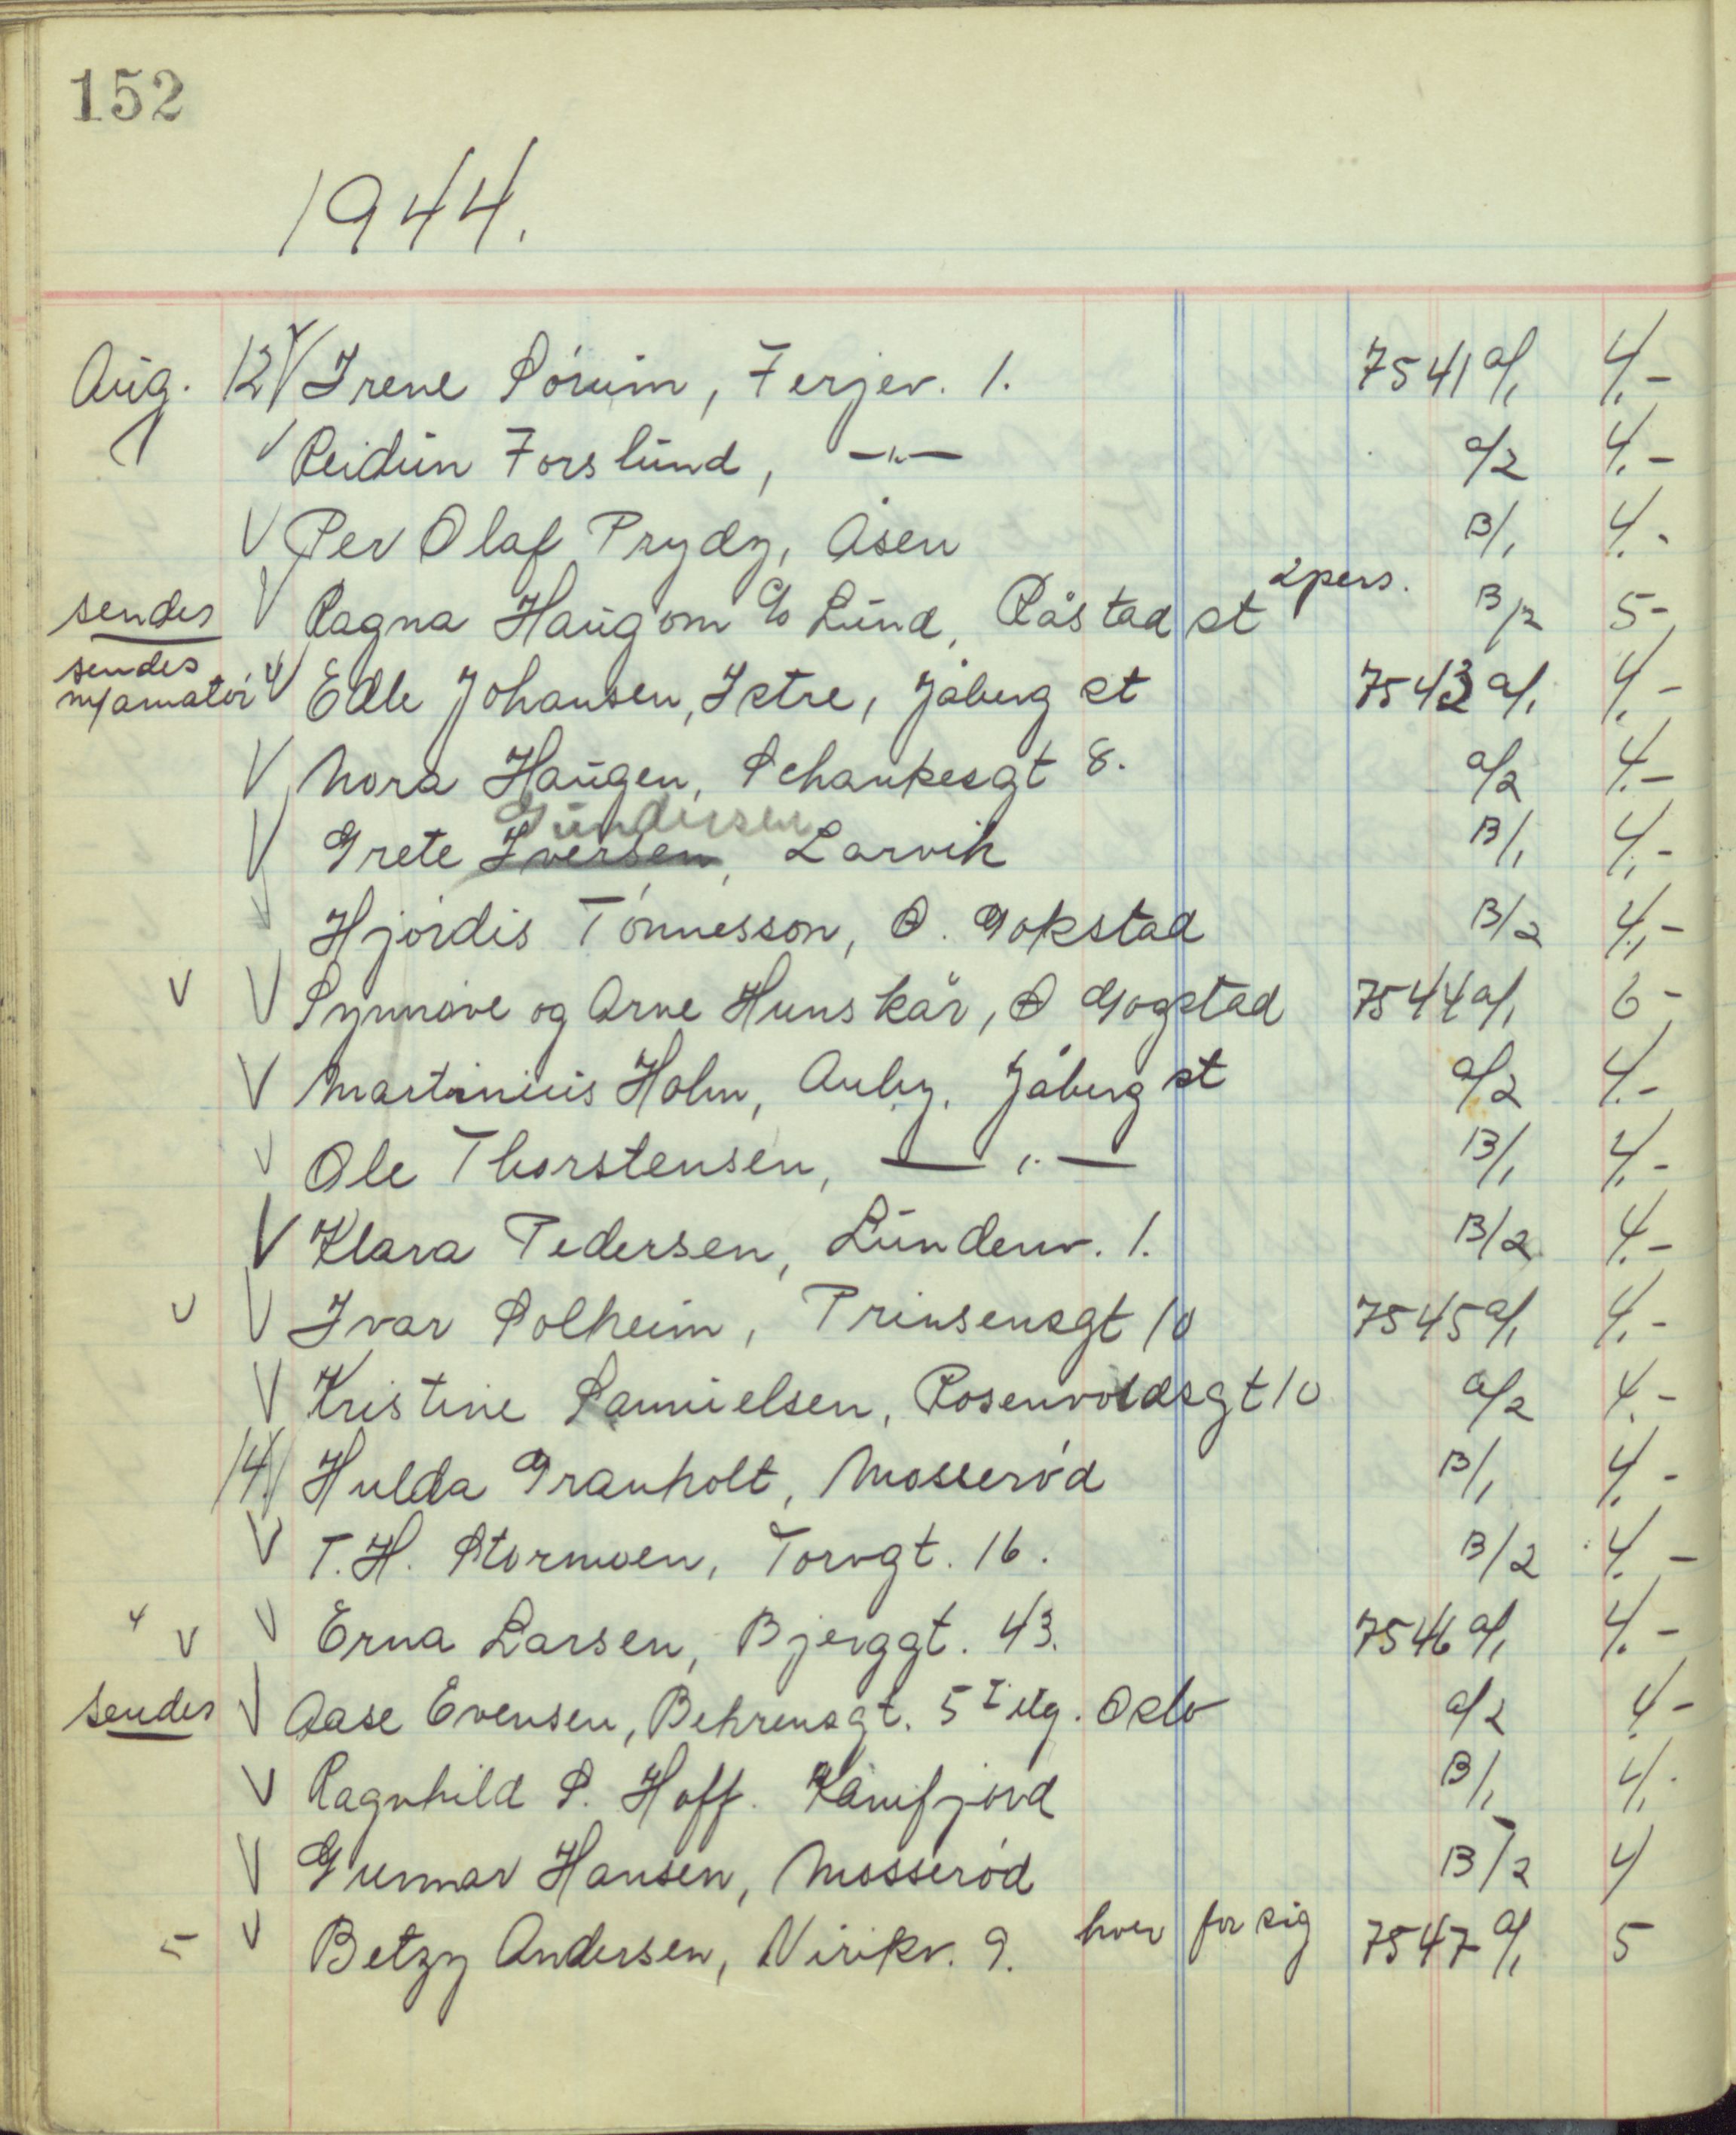 152
1944.
Aug. 12 V Irene Sørum, Ferjev. 1. 7541 a/1 4.-
V Reidun Forslund, —"— a/2 4.-
V Per Olaf Prydz, Åsen B/1 4.-
sendes V Ragna Haugom c/o Lund, Råstad st 2 pers. B/2 5-
sendes m/amatør V Edle Johansen, Istre, Jåberg st 7543 a/1 4.-
V Nora Haugen, Schankesgt 8. a/2 4.-
Gundersen
V Grete Iversen, Larvik B/1 4.-
V Hjørdis Tønnesson, Ø. Gokstad B/2 4.-
V V Synnøve og Arne Hunskår, Ø Gogstad 7544 a/1 6-
V Martinius Holm, Auby, Jåberg st a/2 4.-
V Ole Thorstensen, —"— B/1 4.-
V Klara Pedersen, Lundenv. 1. B/2 4.-
V V Ivar Solheim, Prinsensgt 10 7545 a/1 4.-
V Kristine Samuelsen, Rosenvoldsgt 10 a/2 4.-
14. V Hulda Granholt, Mosserød B/1 4.-
V T. H. Stormoen, Torvgt. 16. B/2 4.-
4 V V Erna Larsen, Bjerggt. 43. 7546 a/1 4.-
sendes V Aase Evensen, Behrensgt. 5 I etg. Oslo a/2 4-
V Ragnhild S. Hoff. Kamfjord B/1 4.
V Gunnar Hansen, Mosserød B/2 4
5 V Betzy Andersen, Nirikv. 9. hver for sig 7547 a/1 5